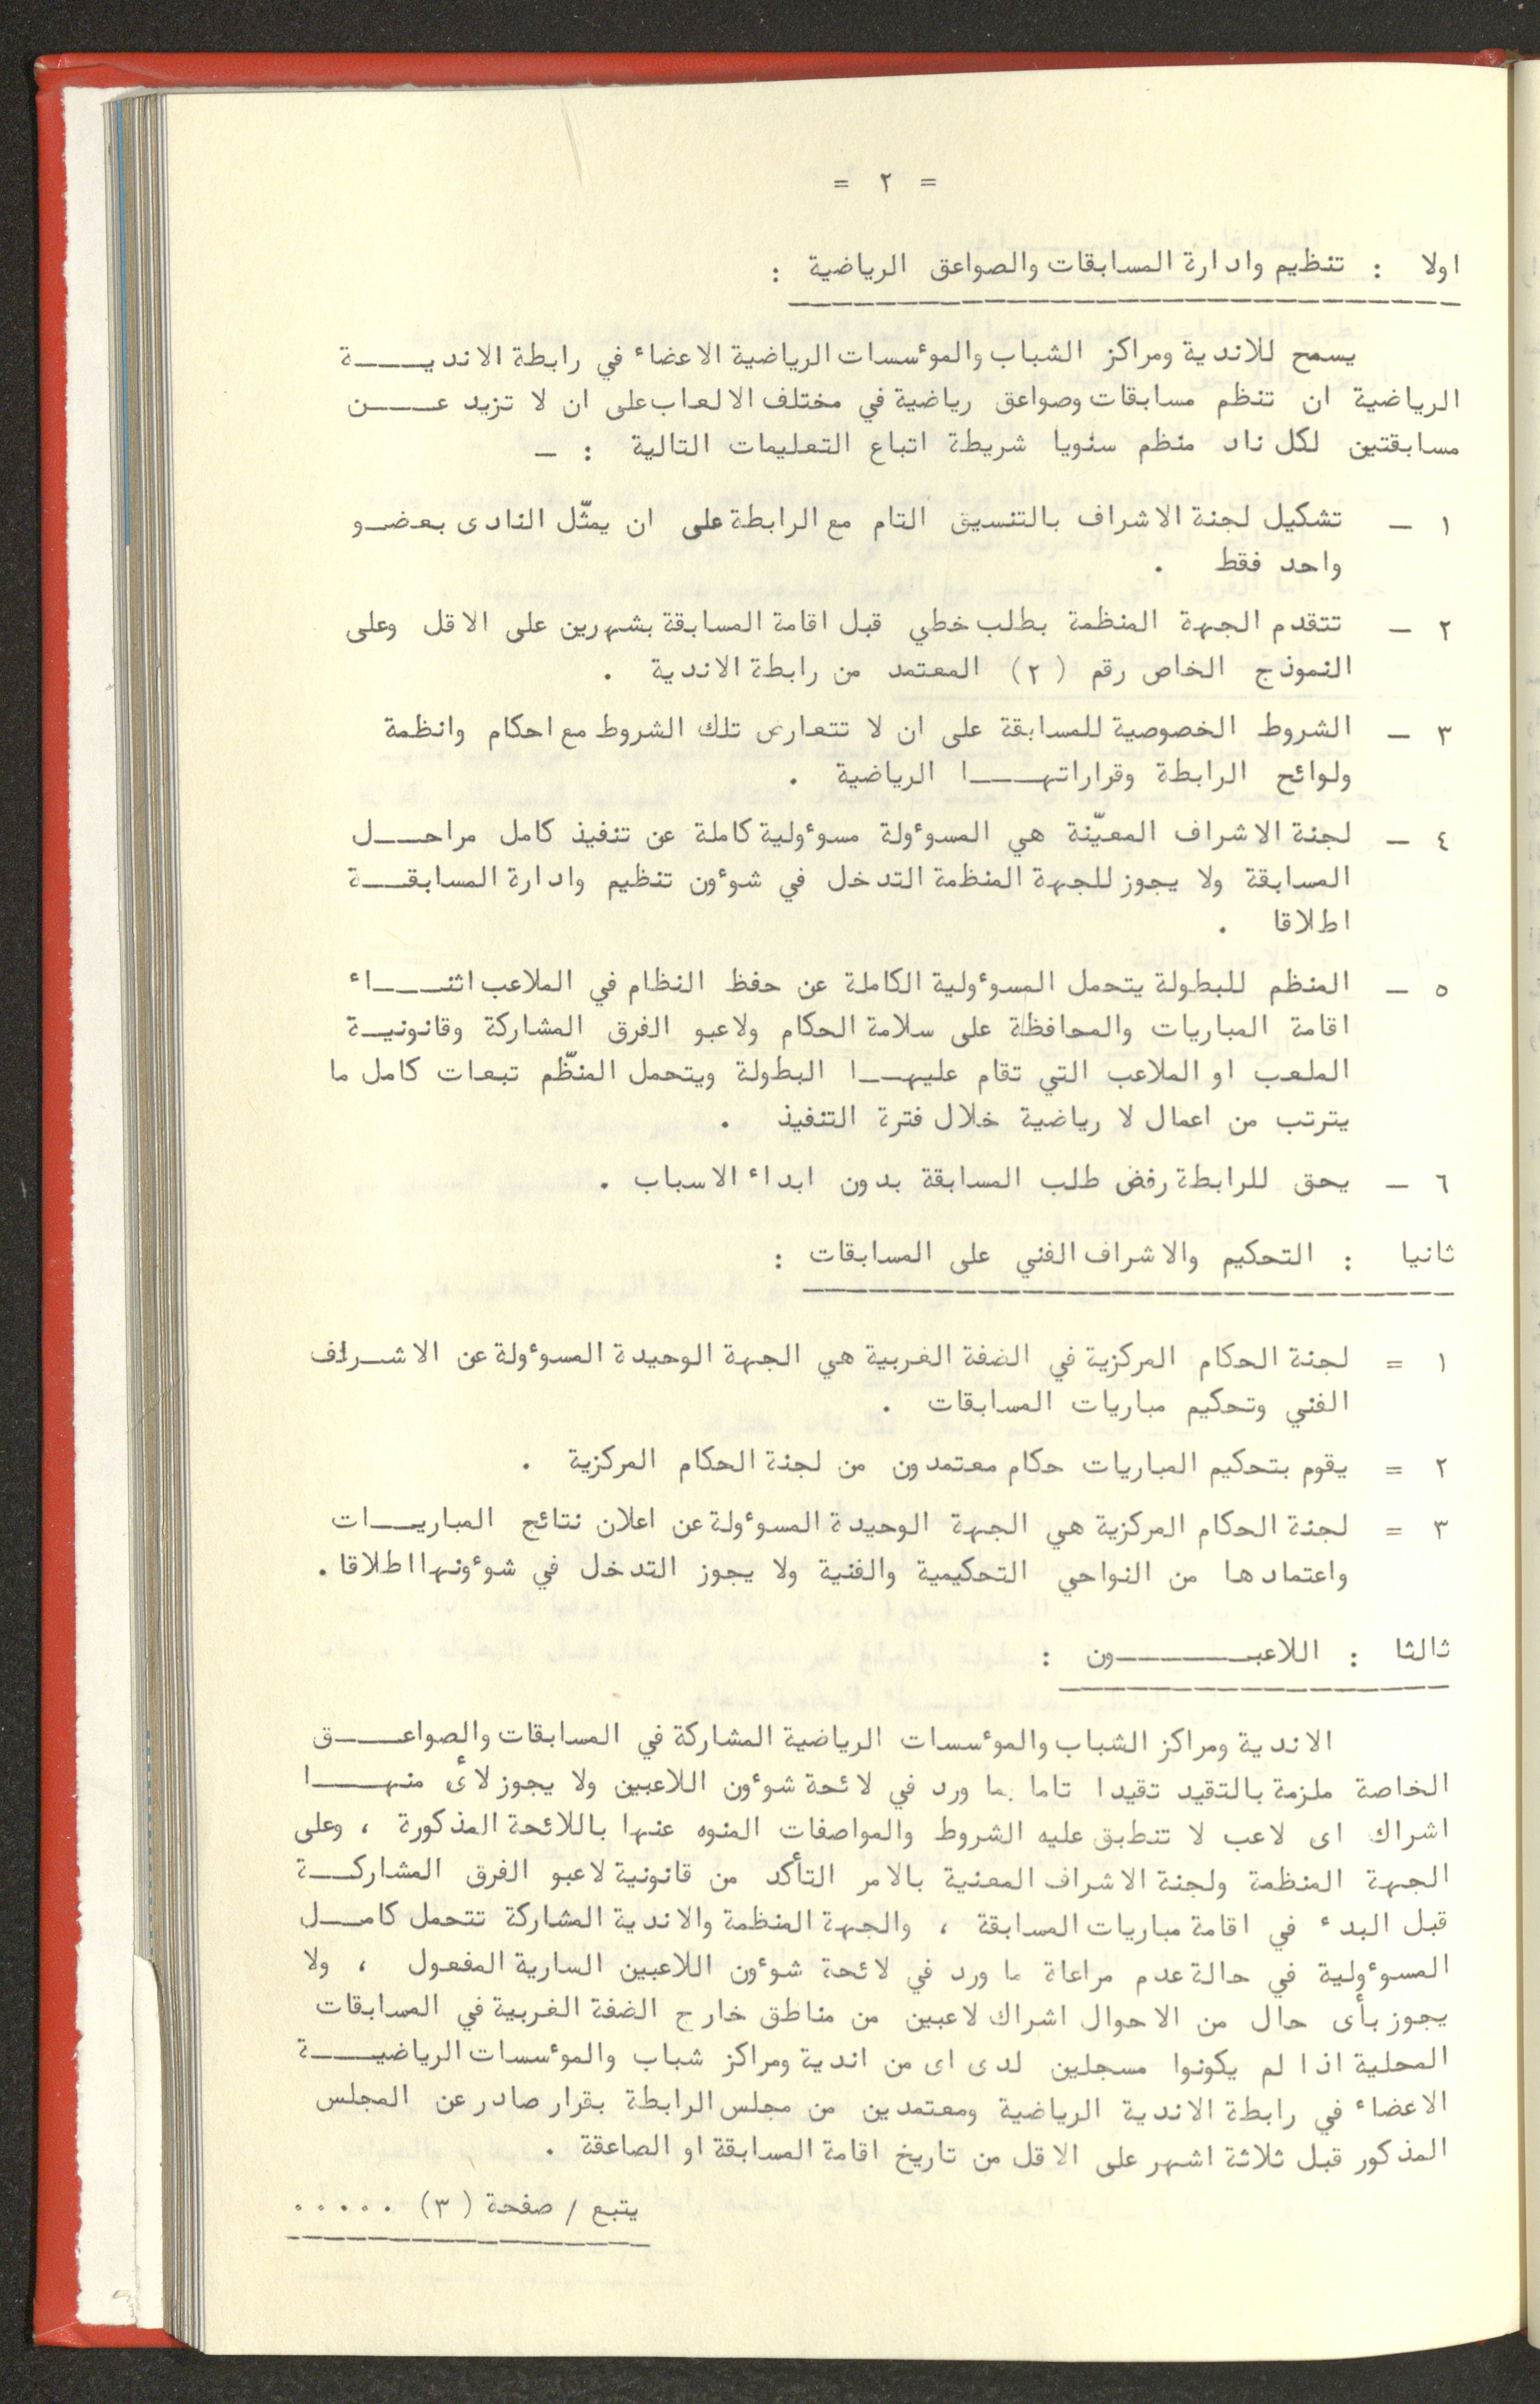 = ٢ =
اولا : تنظيم وادارة المسابقات والصواعق الرياضية :
يسمح للاندية ومراكز الشباب والموءسسات الرياضية الاعضاء في رابطة الانديـــة
الرياضية ان تنظم مسابقات وصواعق رياضية في مختلف الالعاب على ان لا تزيد عـــن
مسابقتين لكل ناد منظم سنويا شريطة اتباع التعليمات التالية : _
١ _ تشكيل لجنة الاشراف بالتنسيق التام مع الرابطة على ان يمثّل النادى بعضـو
واحد فقط .
٢ _ تتقدم الجهة المنظمة بطلب خطي قبل اقامة المسابقة بشهرين على الاقل وعلى
النموذج الخاص رقم ( ٢ ) المعتمد من رابطة الاندية .
٣ _ الشروط الخصوصية للمسابقة على ان لا تتعارض تلك الشروط مع احكام وانظمة
ولوائح الرابطة وقراراتهـــا الرياضية .
٤ _ لجنة الاشراف المعيّنة هي المسوءولة مسوءولية كاملة عن تنفيذ كامل مراحــل
المسابقة ولا يجوز للجهة المنظمة التدخل في شوءون تنظيم وادارة المسابقــة
اطلاقا .
٥ _ المنظم للبطولة يتحمل المسوءولية الكاملة عن حفظ النظام في الملاعب اثنـــاء
اقامة المباريات والمحافظة على سلامة الحكام ولاعبو الفرق المشاركة وقانونيــة
الملعب او الملاعب التي تقام عليهــا البطولة ويتحمل المنظّم تبعات كامل ما
يترتب من اعمال لا رياضية خلال فترة التنفيذ .
٦ _ يحق للرابطة رفض طلب المسابقة بدون ابداء الاسباب .
ثانيا : التحكيم والاشراف الفني على المسابقات :
١ = لجنة الحكام المركزية في الضفة الغربية هي الجهة الوحيدة المسوءولة عن الاشـراف
الفني وتحكيم مباريات المسابقات .
٢ = يقوم بتحكيم المباريات حكام معتمدون من لجنة الحكام المركزية .
٣ = لجنة الحكام المركزية هي الجهة الوحيدة المسوءولة عن اعلان نتائج المباريــات
واعتمادها من النواحي التحكيمية والفنية ولا يجوز التدخل في شوءونها اطلاقا .
ثالثا : اللاعبـــــــون :
الاندية ومراكز الشباب والموءسسات الرياضية المشاركة في المسابقات والصواعــق
الخاصة ملزمة بالتقيد تقيدا تاما بما ورد في لائحة شوءون اللاعبين ولا يجوز لأى منهـــا
اشراك اى لاعب لا تنطبق عليه الشروط والمواصفات المنوه عنها باللائحة المذكورة ، وعلى
الجهة المنظمة ولجنة الاشراف المعنية بالامر التأكد من قانونية لاعبو الفرق المشاركــة
قبل البدء في اقامة مباريات المسابقة ، والجهة المنظمة والاندية المشاركة تتحمل كامــل
المسوءولية في حالة عدم مراعاة ما ورد في لائحة شوءون اللاعبين السارية المفعول ، ولا
يجوز بأى حال من الاحوال اشراك لاعبين من مناطق خارج الضفة الغربية في المسابقات
المحلية اذا لم يكونوا مسجلين لدى اى من اندية ومراكز شباب والموءسسات الرياضيــة
الاعضاء في رابطة الاندية الرياضية ومعتمدين من مجلس الرابطة بقرار صادر عن المجلس
المذكور قبل ثلاثة اشهر على الاقل من تاريخ اقامة المسابقة او الصاعقة .
يتبع / صفحة ( ٣ ) .....